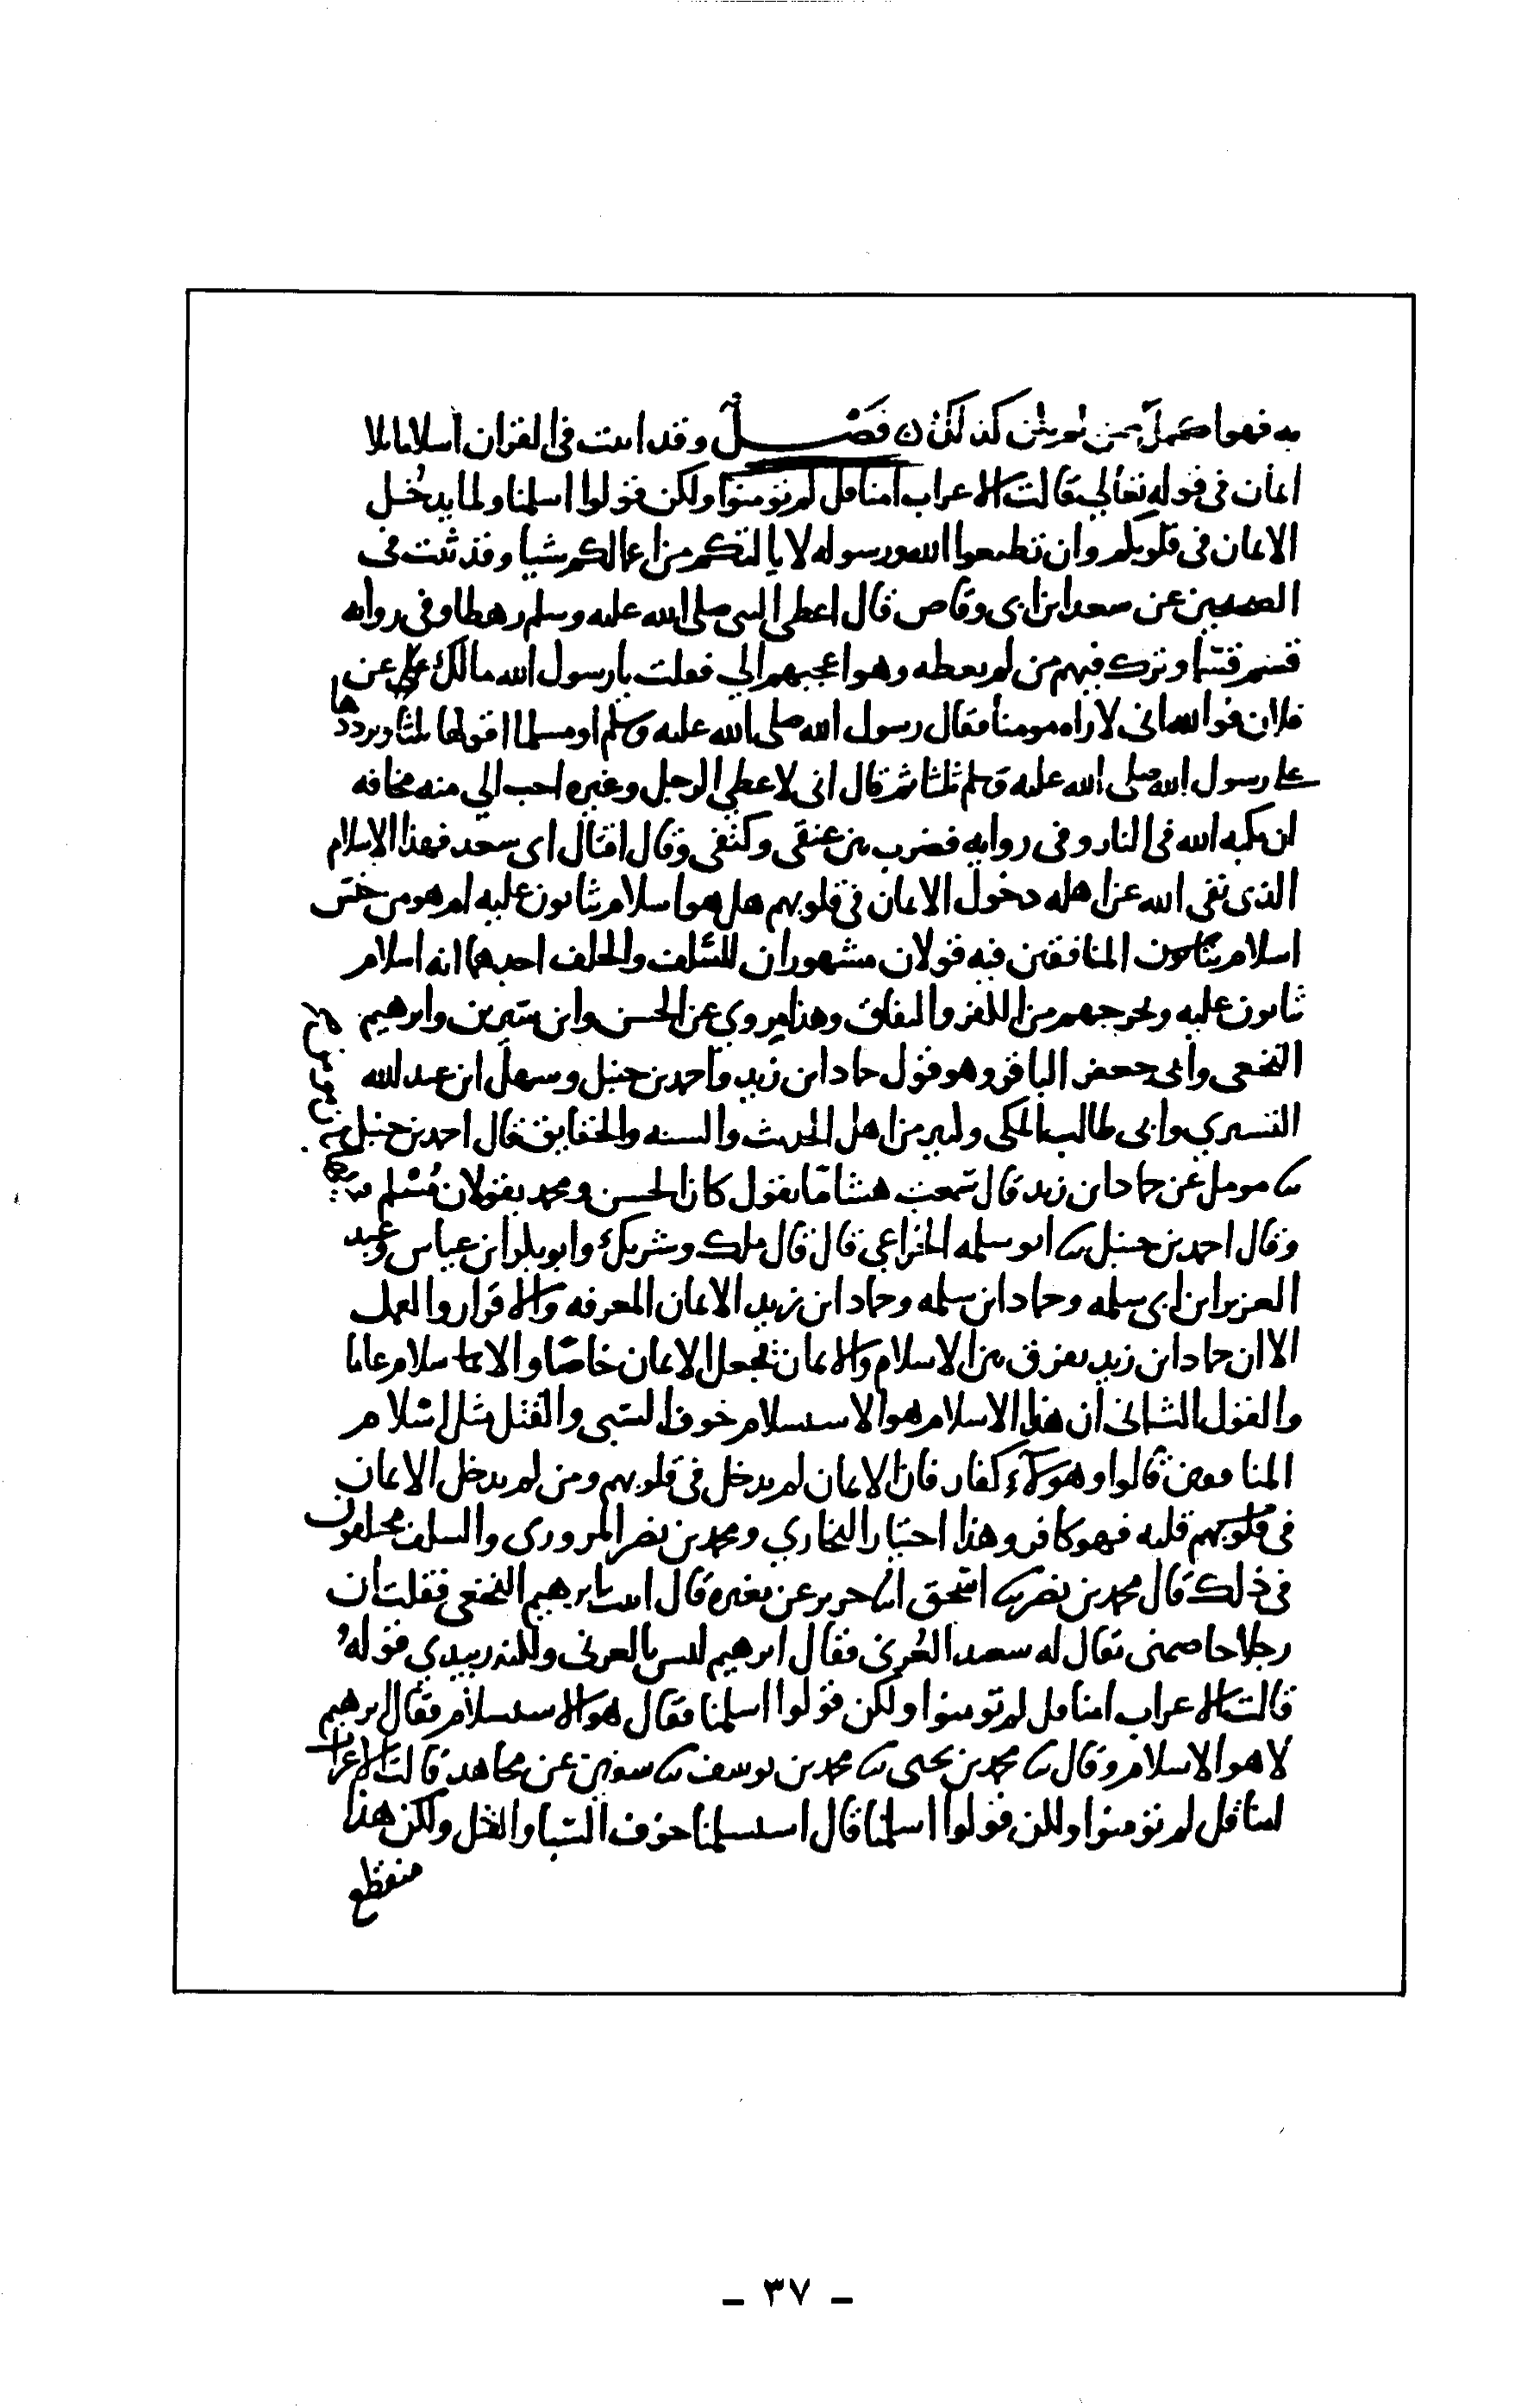 به فهو اكمل ممن لم يكن كذلك ن فصل وقد اثبت في القران اسلاما بلا
ايمان في قوله تعالي قالت الاعراب امنا قل لم تومنوا ولكن قولوا اسلمنا ولما يدخل
الايمان في قلوبكم وان تطيعوا الله ورسوله لا يالتكم من اعمالكم شيا وقد ثبت في
الصحيحين عن سعد ابن ابي وقاص قال اعطي النبي صلي الله عليه وسلم رهطا وفي روايه
قسم قسما وترك فيهم من لم يعطه وهو اعجبهم الي فقلت يا رسول الله مالك عن
فلان فوالله اني لاراه مومنا فقال رسول الله صلي الله عليه وسلم او مسلما اقولها ثلثا ويرددها
علي رسول الله صلي الله عليه وسلم ثلثا ثم قال اني لاعطي الرجل وغيره احب الي منه مخافه
ان يكبه الله في النار وفي روايه فضرب بين عنقي وكتفي وقال اقتال اي سعد فهذا الاسلام
الذي نفي الله عن اهله دخول الايمان في قلوبهم هل هو اسلام يثابون عليه ام هو من جنس
اسلام المنافقين فيه قولان مشهوران للسلف والخلف احدهما انه اسلام
يثابون عليه ويخرجهم من الكفر والنفاق وهذا مروي عن الحسن وابن سيرين وابرهيم
النخعي وابي جعفر الباقر وهو قول حماد ابن زيد واحمد بن حنبل وسهل ابن عبد الله
التستري وابي طالب المكي وكثير من اهل الحديث والسنه والحقايق قال احمد بن حنبل
ثنا مومل عن حماد ابن زيد قال سمعت هشاما يقول كان الحسن ومحمد يقولان مسلم
وقال احمد بن حنبل ثنا ابو سلمه الخزاعي قال قال ملك وشريك وابو بكر ابن عياش وعبد
العزيز ابن ابي سلمه وحماد ابن سلمه وحماد ابن زيد الايمان المعرفه والاقرار والعمل
الا ان حماد ابن زيد يفرق بين الاسلام والايمان يجعل الايمان خاصا والاسلام عاما
والقول الثاني ان هذا الاسلام هو الاستسلام خوف السبي والقتل مثل اسلام
المنافقين قالوا وهولاء كفار فان الايمان لم يدخل في قلوبهم ومن لم يدخل الايمان
في قلبه فهو كافر وهذا اختيار البخاري ومحمد بن نصر المروزي والسلف مختلفون
في ذلك قال محمد بن نصر ثنا اسحق انا جرير عن مغيره قال اتيت ابرهيم النخعي فقلت ان
رجلا خاصمني يقال له سعيد العنزي فقال ابرهيم ليس بالعنزي ولكنه زبيدي قوله
قالت الاعراب امنا قل لم تومنوا ولكن قولوا اسلمنا فقال هو الاستسلام فقال ابرهيم
لا هو الاسلام وقال ثنا محمد بن يحيي ثنا محمد بن يوسف ثنا سفين عن مجاهد قالت الاعراب
امنا قل لم تومنوا ولكن قولوا اسلمنا قال استسلمنا خوف السبا والقتل ولكن هذا
منقطع
- ٣٧ -